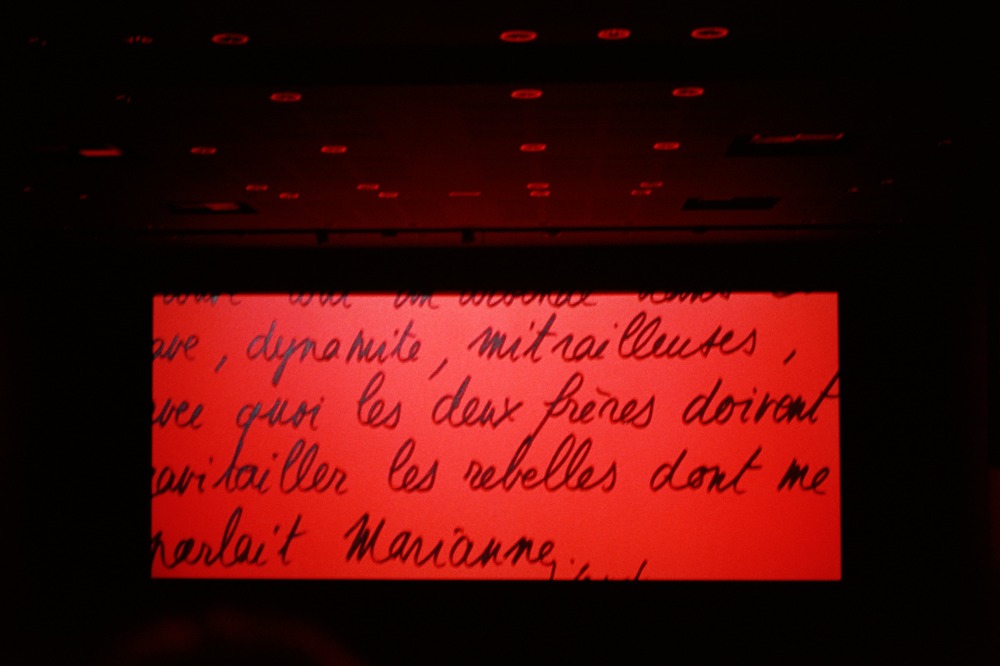 , dynamite, mitrailleuses,
quoi les deux frères doivent
ravitailler les rebelles dont me
parlait Marianne.